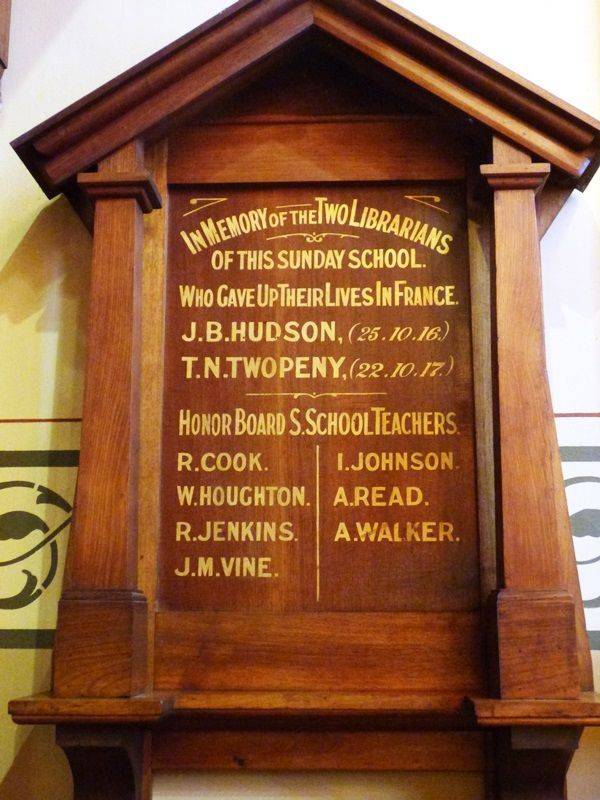 IN MEMORY OF THE TWO LIBRARIANS
OF THIS SUNDAY SCHOOL.
WHO GAVE UP THEIR LIVES IN FRANCE.
J.B.HUDSON, (25.10.16.)
T.N.TWOPENY, (22.10.17.)
HONOR BOARD S.SCHOOL TEACHERS.
R.COOK.
W.HOUGHTON.
R.JENKINS.
J.M.VINE.
I.JOHNSON.
A.READ.
A.WALKER.